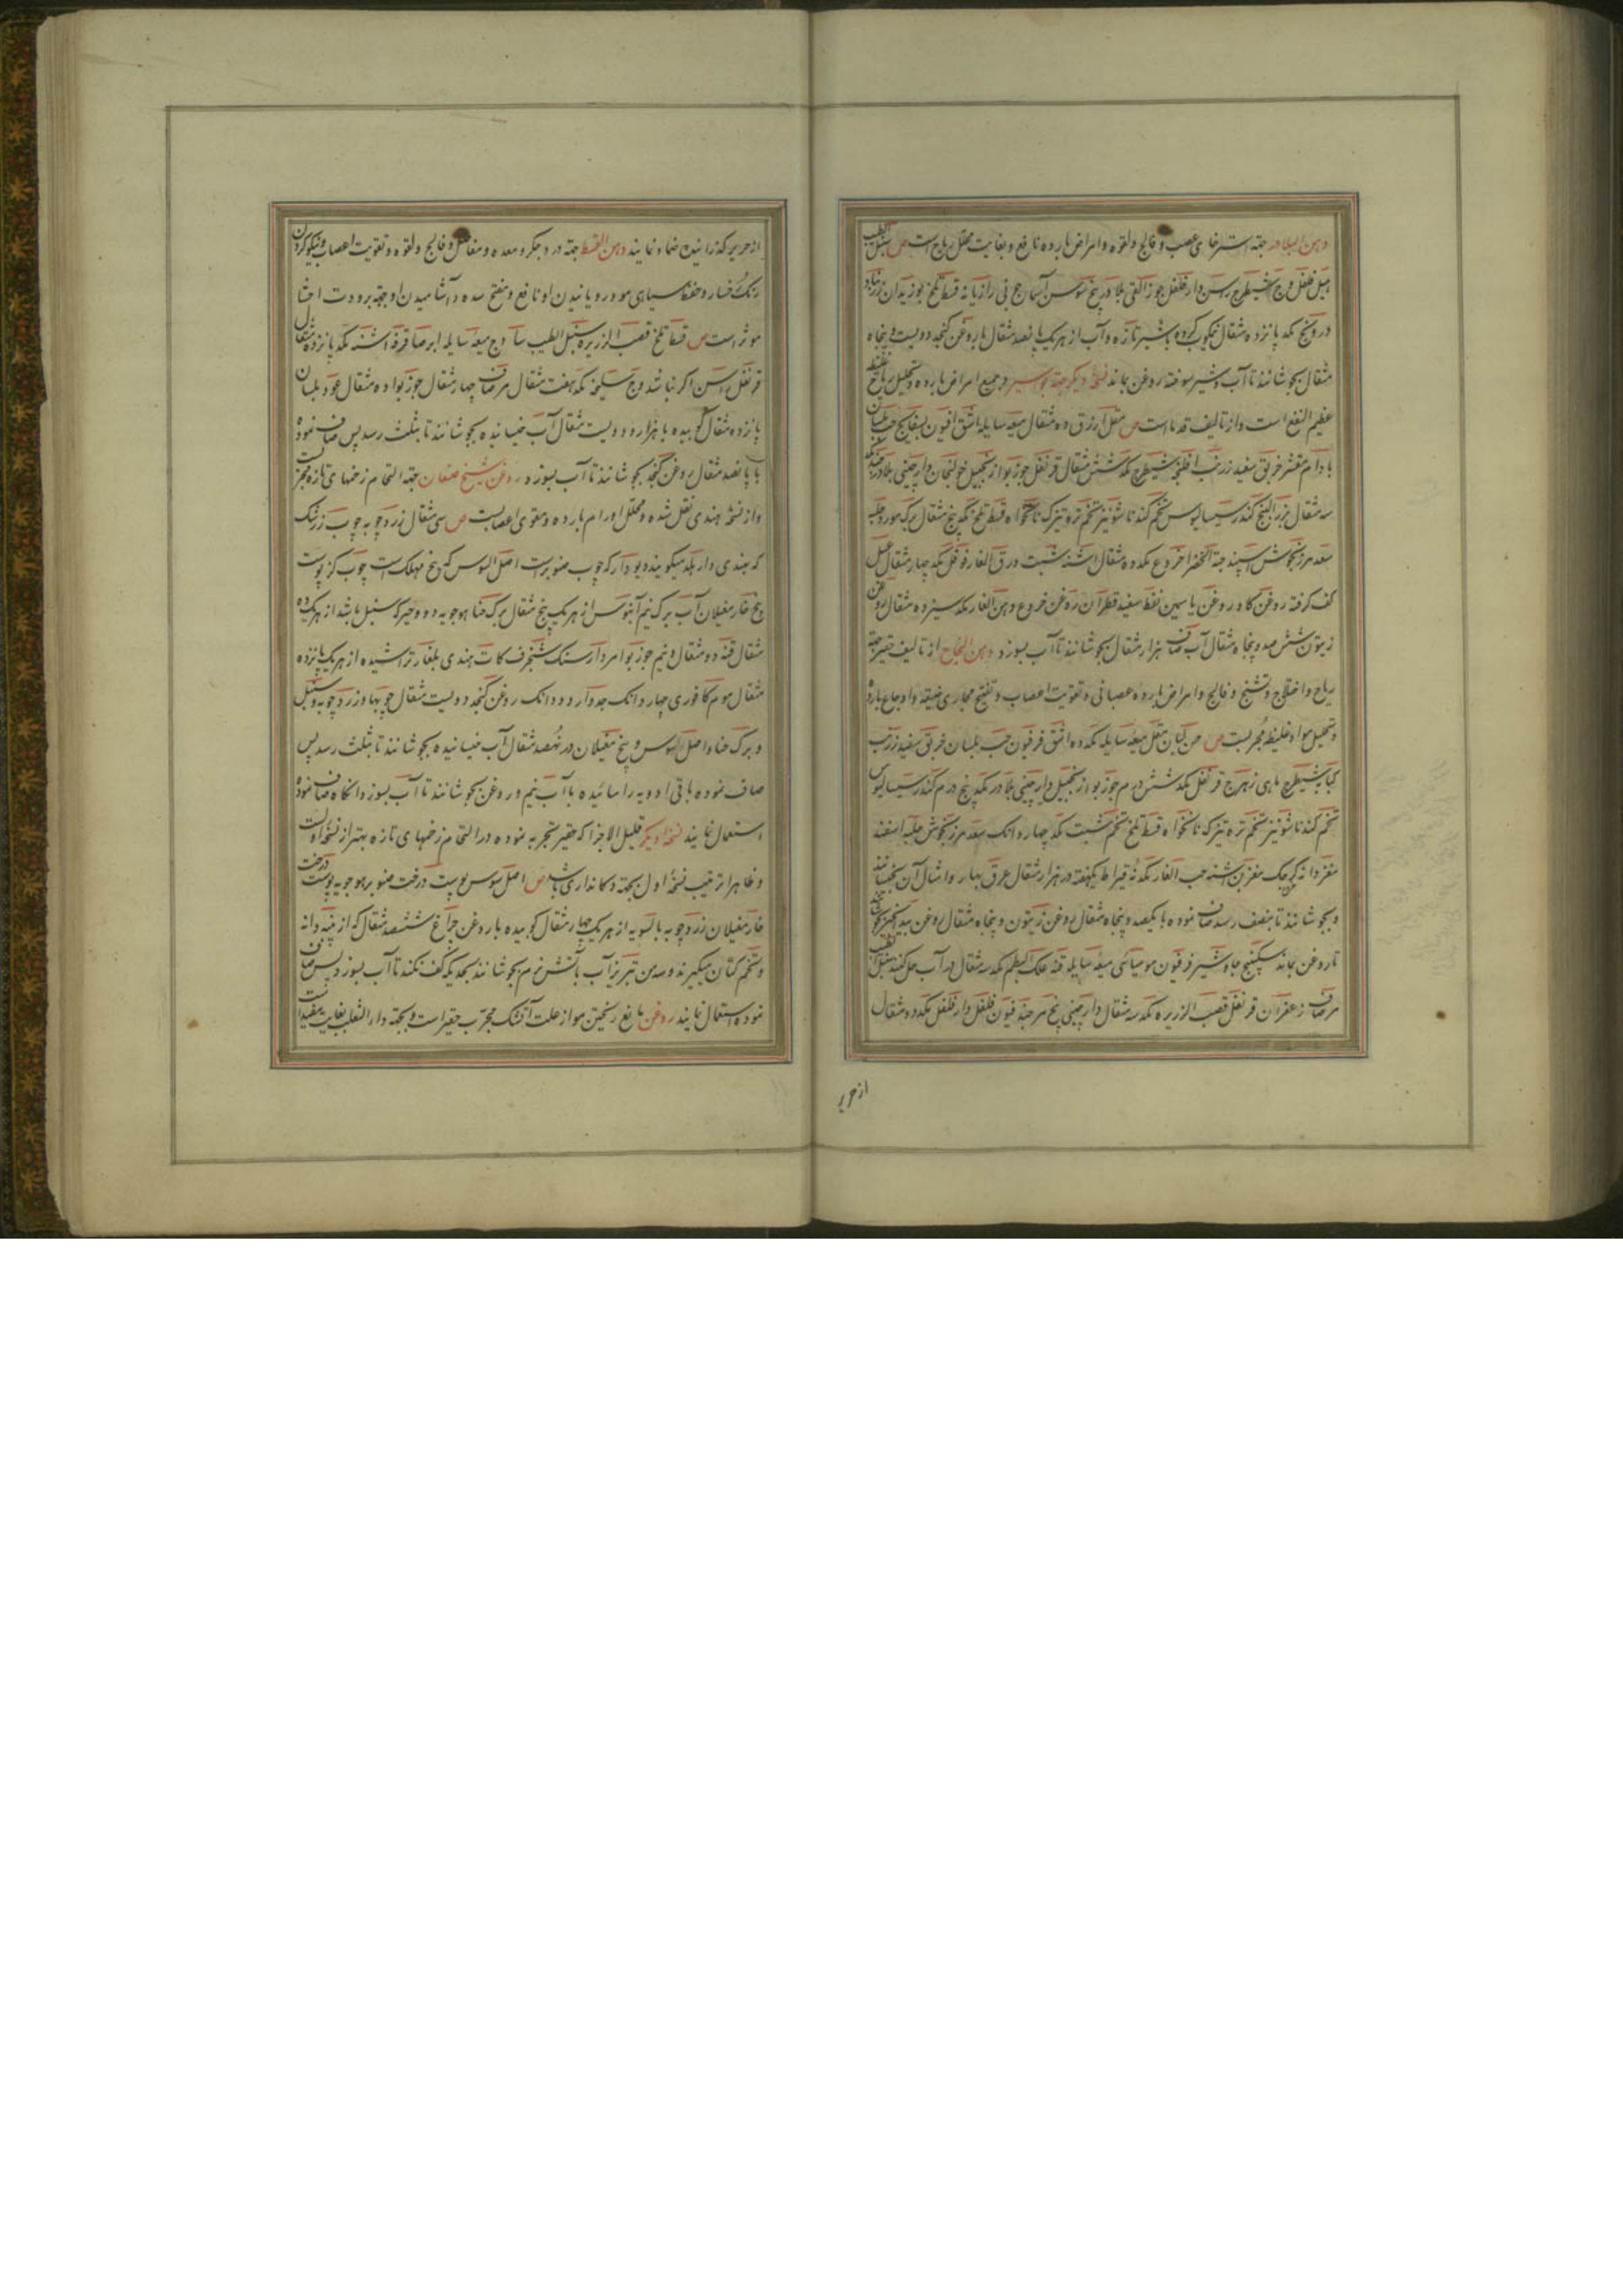 دهن البلادر جهة استرخای عصب و فالج و لقوه و امراض بارده نافع و بغایت محلل ریاح است ص سنبل الطیب
هیل فلفل وج شیطرج راسن دارفلفل جوز القی بلادر بیخ سوسن آسمانجونی رازیانه قسط تلخ بوزیدان زرنباد
درونج مکد پانزده مثقال نیمکوب کرده با شیر تازه و آب از هر یک پانصد مثقال با روغن کنجد دویست و پنجاه
مثقال بجوشانند تا آب و شیر سوخته روغن بماند نسخه دیکر جهة بواسیر و جمیع امراض بارده و تحلیل ریاح غلیظ
عظیم النفع است و از تالیف قدماست ص مقل ازرق ده مثقال میعه سایله اشق افیون بسفایج حب بلسان
بادام مقشر خربق سفید زرنب شیطرج مکد شش مثقال قرنفل جوزبوا زنجبیل خولنجان دارچینی بلادر مکد
سه مثقال بزر البنج کندر سیسالیوس تخم کندنا شونیز تخم تره تیزک نانخواه قسط تلخ مکد پنج مثقال برک مورد حلبه
سعد مرزنجوش اسپند حبة الخضرا خروع مکد ده مثقال اشنه شبت ورق الغار فوفل مکد چهار مثقال عسل
کف کرفته روغن کاو روغن یاسمین نفط سفید قطران روغن خروع دهن الغار مکد سیزده مثقال روغن
زیتون ششصد و پنجاه مثقال آب صاف هزار مثقال بجوشانند تا آب بسوزد دهن النجاح از تالیف حقیر جهة
ریاح و اختلاج و تشنج و فالج و امراض بارده عصبانی و تقویت اعصاب و تفتیح مجاری ضیقه و اوجاع بارده
و تحلیل مواد غلیظه مجربست ص مقل میعه سایله مکد ده اشق فرفیون حب بلسان خربق سفید زرنب
کبابه شیطرج ماهی زهرج قرنفل مکد شش درم جوزبوا زنجبیل دارچینی بلادر مکد پنج درم کندر سیسالیوس
تخم کندنا شونیز تخم تره تیزک نانخواه قسط تلخ تخم شبت مکد چهار دانک سعد مرزنجوش حلبه اسفند
مغز دانه کرچک اشنه حب الغار مکد نه قیراط یکهفته در هزار مثقال عرق بهار و امثال آن بخیسانند
و بجوشانند تا بنصف رسد صاف نموده با یکصد و پنجاه مثقال روغن زیتون و پنجاه مثقال روغن بیدانجیر بجوشانند
تا روغن بماند سکبینج جاوشیر فرفیون مومیائی میعه سایله قنه علک البطم مکد سه مثقال در آب حل کنند سنبل الطیب
مر صاف زعفران قرنفل قصب الزریره مکد سه مثقال دارچینی پنج فلفل دارفلفل مکد دو مثقال
از حریر
از حریر کذرانیده ضماد نمایند دهن القسط جهة درد جکر و معده و مفاصل و فالج و لقوه و تقویت اعصاب و نیکو کردن
رنک رخسار و حفظ سیاهی مو و رویانیدن او نافع و مفتح سده و آشامیدن او جهة برودت احشا
موثر است ص قسط تلخ قصب الزریره سنبل الطیب ساذج میعه سایله ابرسا قرفه اشنه مکد پانزده مثقال
قرنفل راسن اکر نباشد وج سلیخه مکد هفت مثقال مر صاف چهار مثقال جوزبوا ده مثقال عود بلسان
پانزده مثقال کوبیده با هزار و دویست مثقال آب خیسانیده بجوشانند تا بثلث رسد پس صاف نموده
با پانصد مثقال روغن کنجد بجوشانند تا آب بسوزد روغن شیخ صنعان جهة التحام زخمهای تازه مجربست
و از نسخه هندی نقل شده و محلل اورام بارده و مقوی اعصابست ص سی مثقال زردچوبه چوب زرشک
که بهندی دارهلد میکویند دیودار که چوب صنوبر است اصل السوس که بیخ مهلک است چوب کز پوست
بیخ خار مغیلان آب برک نیم آبنوس از هر یک پنج مثقال برک حنا هوجویه دو وخیرک سنبل باشد از هریک ده
مثقال قنه دو مثقال و نیم جوزبوا مردارسنک شنجرف کات هندی بلغار تراشیده از هر یک پانزده
مثقال موم کافوری چهار دانک جدوار دو دانک روغن کنجد دویست مثقال چوبها و زردچوبه و سنبل
و برک حنا و اصل السوس و بیخ مغیلان در نهصد مثقال آب خیسانیده بجوشانند تا بثلث رسد پس
صاف نموده باقی ادویه را سائیده با آب نیم و روغن بجوشانند تا آب بسوزد و آنکاه صاف نموده
استعمال نمایند نسخه دیکر قلیل الاجزا که حقیر تجربه نموده در التحام زخمهای تازه بهتر از نسخه اولست
و ظاهرا ترتیب نسخه اول بجهة دکانداری باشد ص اصل سوس پوست درخت صنوبر هوجویه پوست درخت
خار مغیلان زردچوبه بالسویه از هر یک چهار مثقال کوبیده با روغن چراغ ششصد مثقال که از پنبه دانه
و تخم کتان میکیرند و سه من تبریز آب بآتش نرم بجوشانند بحدیکه کف نکند تا آب بسوزد پس صاف
نموده استعمال نمایند روغن مانع ریختن مو از علت آتشک مجرب حقیر است و بجهة داء الثعلب بغایت مفید است